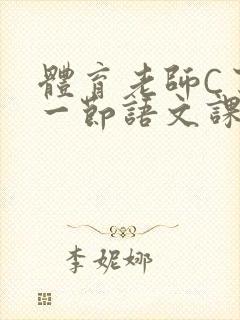 體育老師C
一節語文課
李妮娜